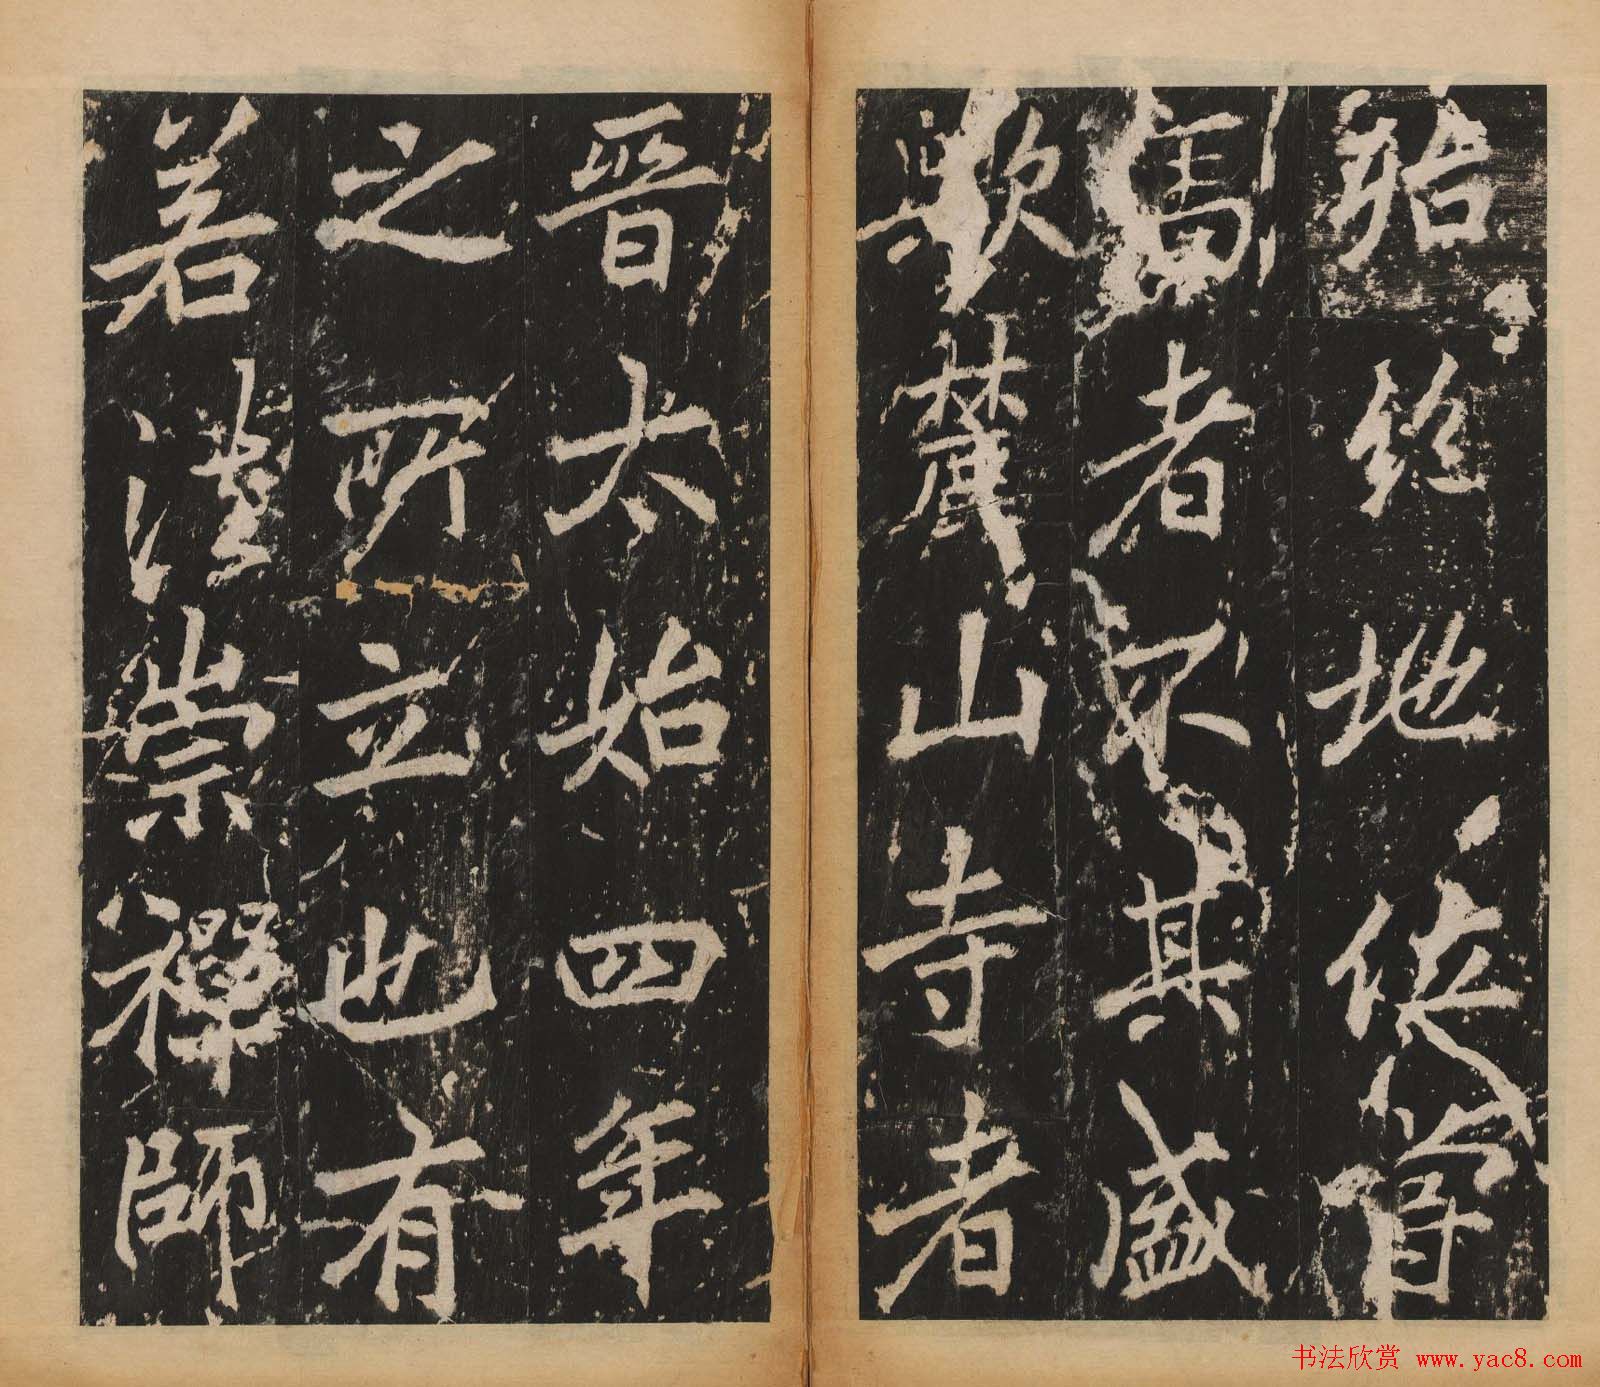 殆絕地位嘗
高者不其盛
歟麓山寺者
晉太始四年
之所立也有
若法崇禪師
书法欣赏 www.yac8.com